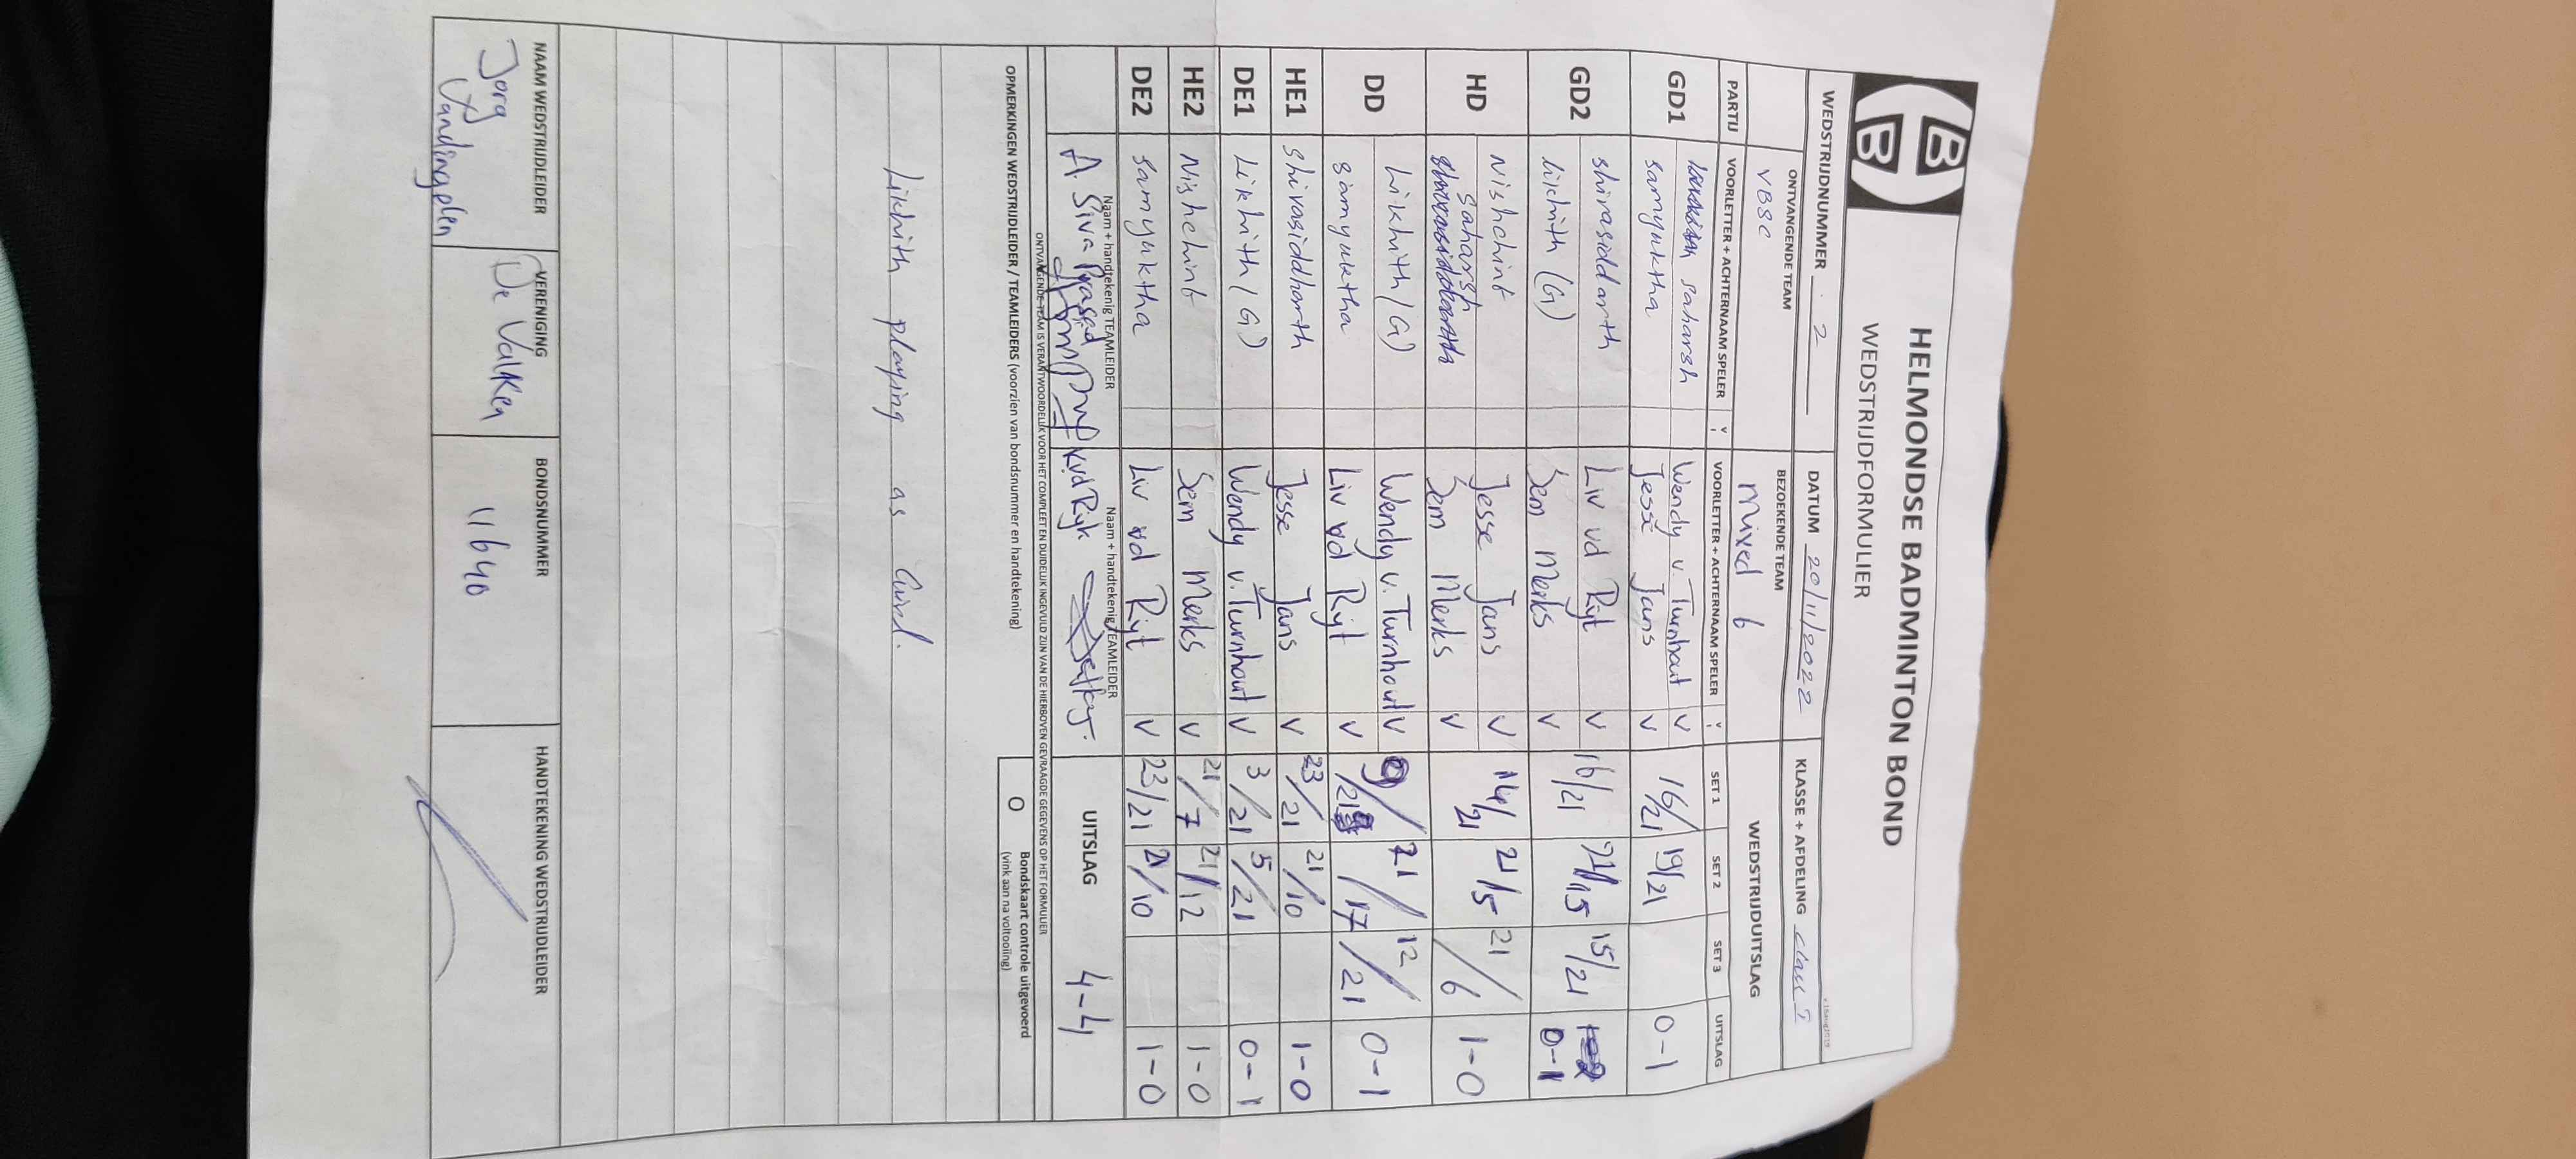 HELMONDSE BADMINTON BOND
WEDSTRIJDFORMULIER
WEDSTRIJDNUMMER 2 DATUM 20/11/2022 KLASSE + AFDELING class I
ONTVANGENDE TEAM BEZOEKENDE TEAM WEDSTRIJDUITSLAG
VBSC Mixed 6
PARTIJ VOORLETTER + ACHTERNAAM SPELER V VOORLETTER + ACHTERNAAM SPELER V SET 1 SET 2 SET 3 UITSLAG
GD1 saharsh Wendy v. Turnhout V 16/21 19/21 0-1
samyuktha Jesse Jans V
GD2 shivasiddarth Liv vd Rijt V 16/21 21/15 15/21 0-1
likhith (G) Sem Merks V
HD Nishchint Jesse Jans V 14/21 21/5 21/6 1-0
saharsh Sem Merks V
DD Likhith (G) Wendy v. Turnhout V 9/21 21/17 12/21 0-1
samyuktha Liv vd Rijt V
HE1 shivasiddharth Jesse Jans V 23/21 21/10 1-0
DE1 Likhith (G) Wendy v. Turnhout V 3/21 5/21 0-1
HE2 Nishchint Sem Merks V 21/7 21/12 1-0
DE2 samyuktha Liv vd Rijt V 23/21 21/10 1-0
Naam + handtekenig TEAMLEIDER Naam + handtekenig TEAMLEIDER
A Siva Prasad KvdRijt UITSLAG 4-4
ONTVANGENDE TEAM IS VERANTWOORDELIJK VOOR HET COMPLEET EN DUIDELIJK INGEVULD ZIJN VAN DE HIERBOVEN GEVRAAGDE GEGEVENS OP HET FORMULIER
OPMERKINGEN WEDSTRIJDLEIDER / TEAMLEIDERS (voorzien van bondsnummer en handtekening) O Bondskaart controle uitgevoerd
(vink aan na voltooiing)
Likhith playing as Girl.
NAAM WEDSTRIJDLEIDER VERENIGING BONDSNUMMER HANDTEKENING WEDSTRIJDLEIDER
Jorg De Valken 11640